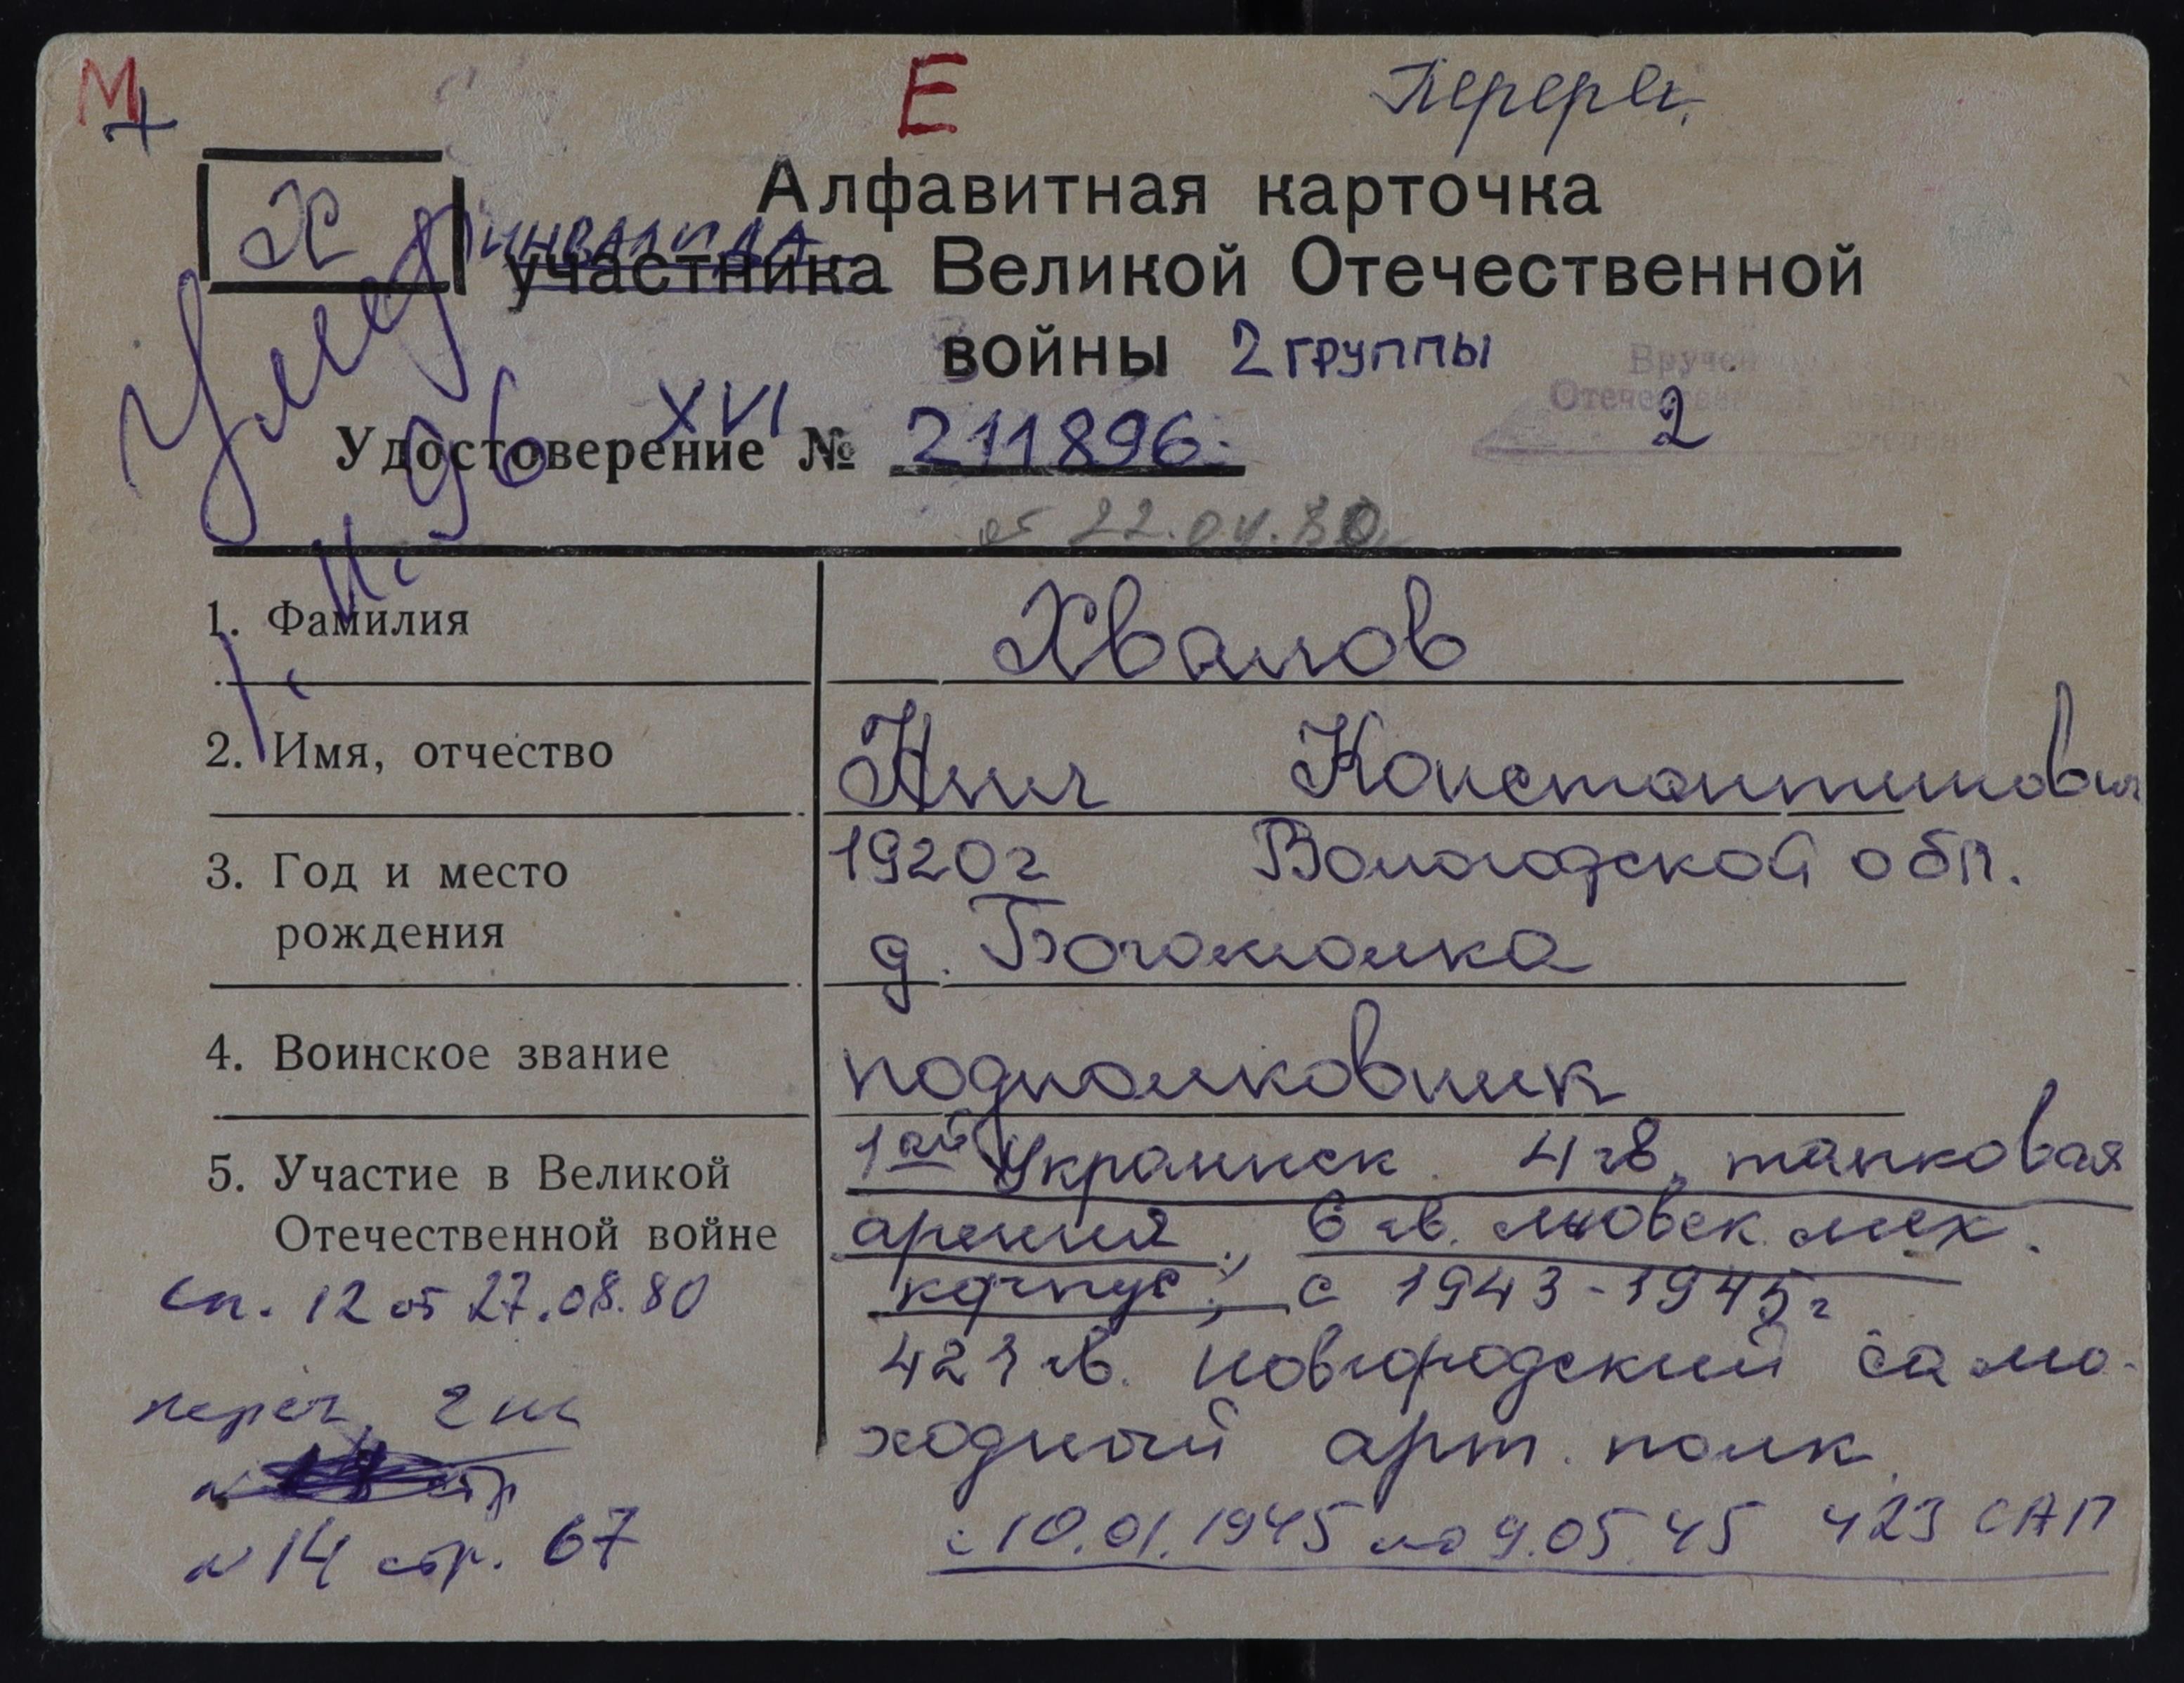 М Е Перерег.
+
Х
Алфавитная карточка
инвалида
участника Великой Отечественной
войны 2 группы
Умер
Вручен
Отечественной
XVI
Удостоверение № 211896
2
96
от 22.04.80
1. Фамилия Хвалов
2. Имя, отчество Нил Константинович
3. Год и место 1920г Вологодской обл.
рождения д. Богомолка
4. Воинское звание подполковник
5. Участие в Великой 1ый Украинск. 4 гв. танковая
Отечественной войне армия, 6 гв. львовск. мех.
сп. 12 от 27.08.80 корпус, с 1943-1945г
423 гв. новгородский само-
ходный арт. полк.
№ 14 стр. 67 с 10.01.1945 по 9.05.45 423 САП